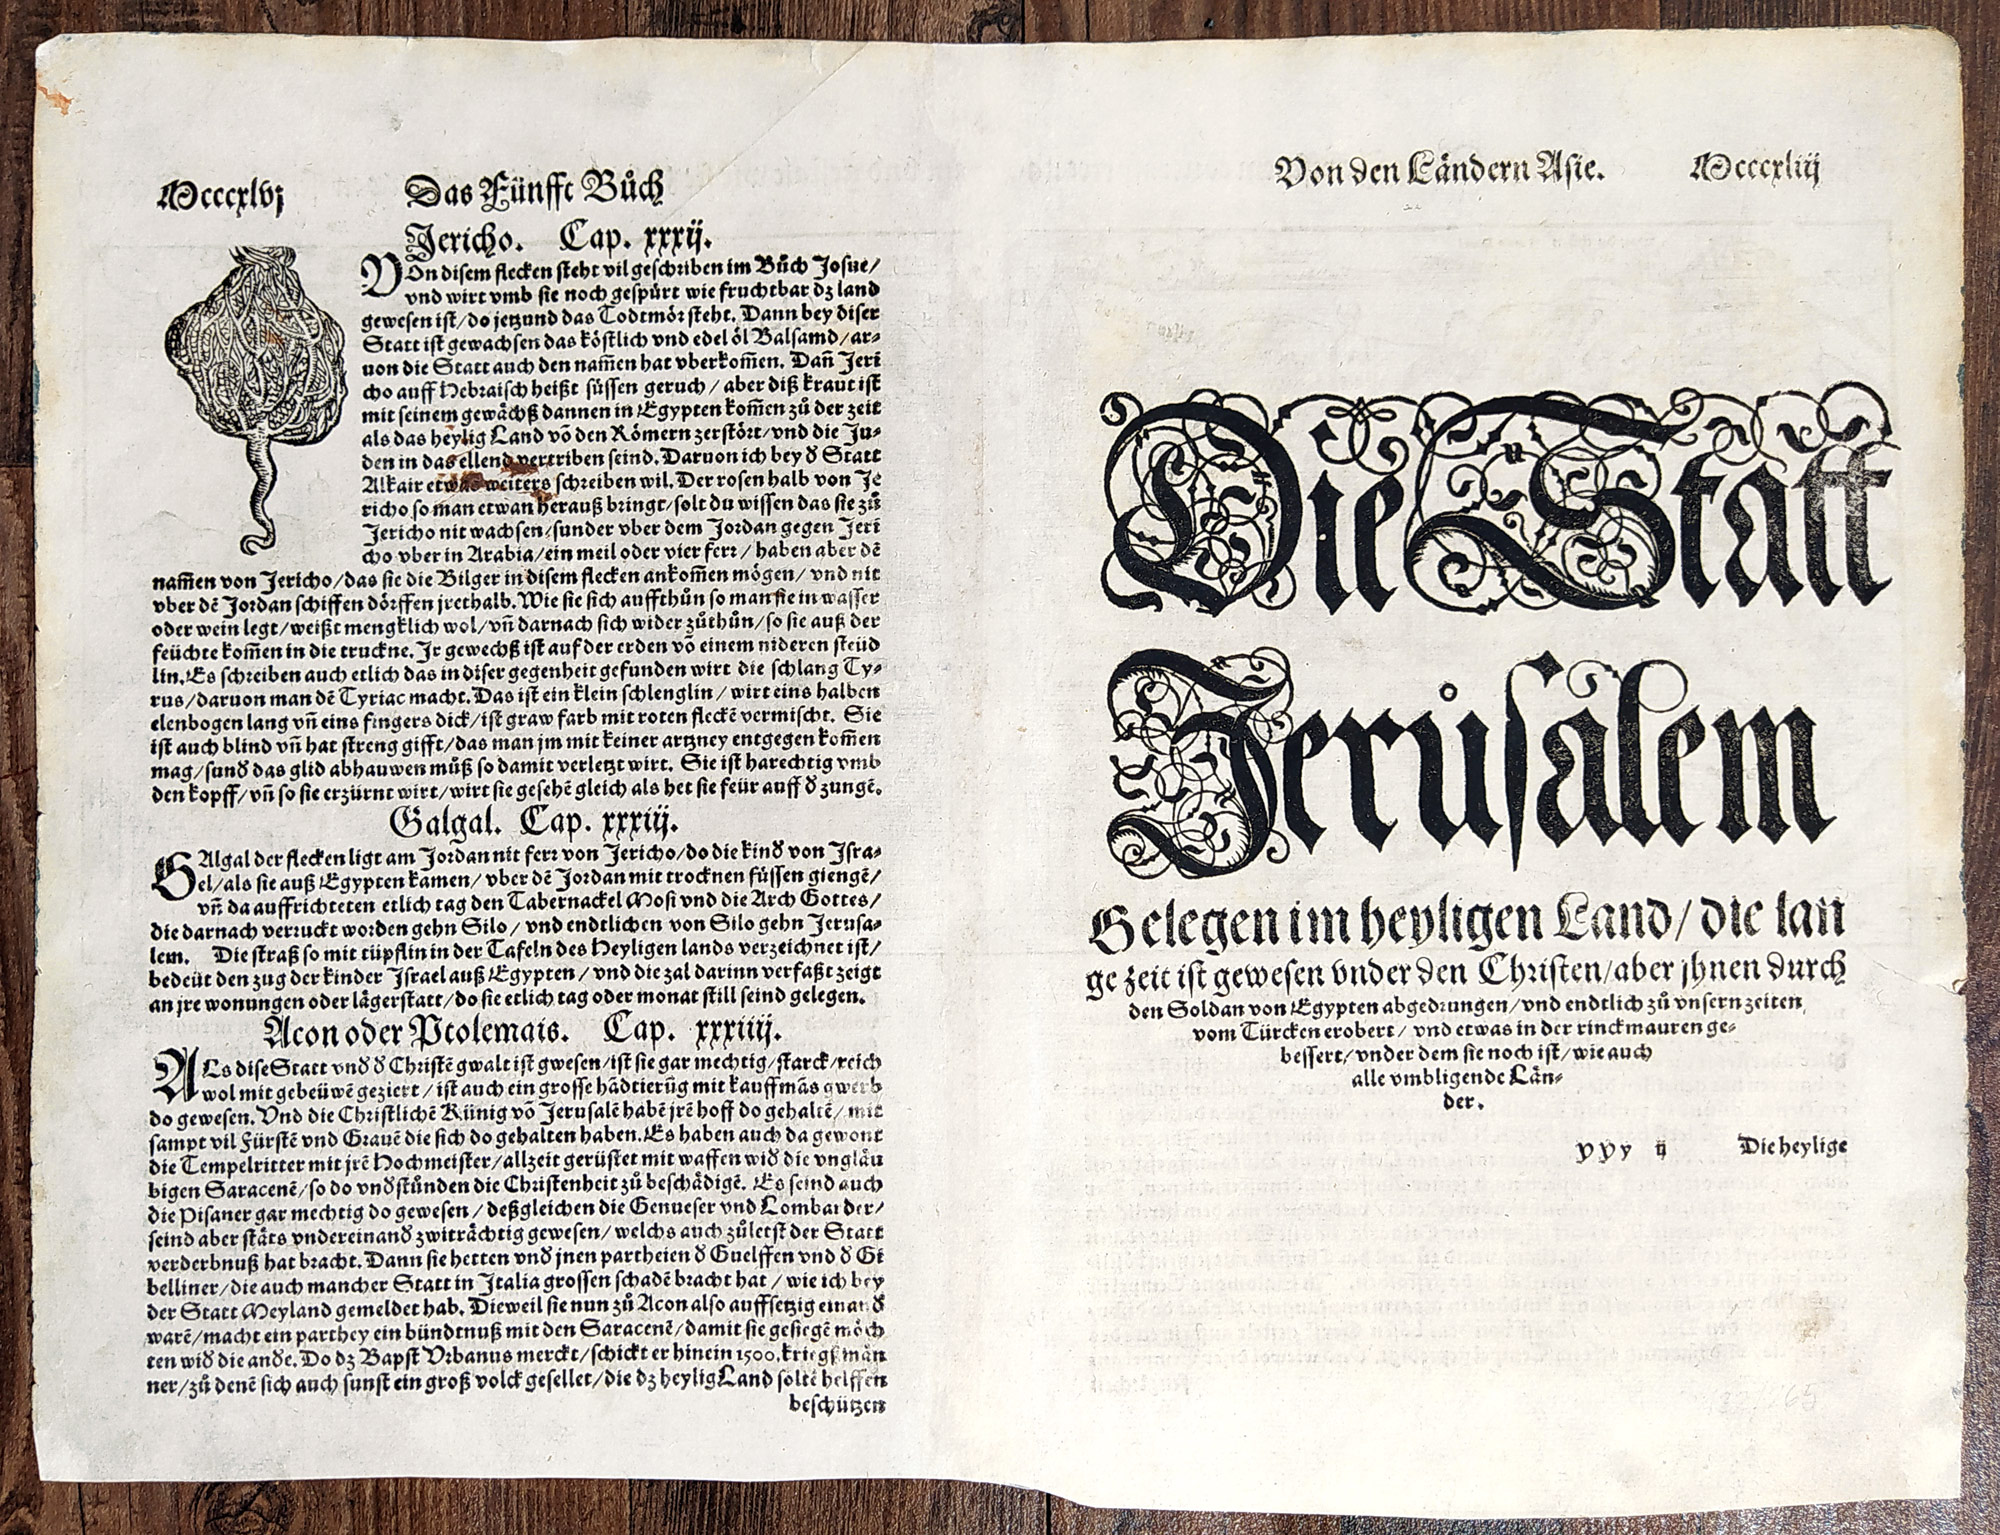 Mcccxlvj Das Fünfft Bůch
Jericho. Cap. xxxij.
VOn disem flecken steht vil geschriben im Bůch Josue/
vnd wirt vmb sie noch gespürt wie fruchtbar dz land
gewesen ist/do jetzund das Todtmör steht. Dann bey diser
Statt ist gewachsen das köstlich vnd edel öl Balsamd/ar⸗
uon die Statt auch den nam̃en hat vberkom̃en. Dañ Jeri
cho auff Hebraisch heißt süssen geruch/aber diß kraut ist
mit seinem gewächß dannen in Egypten kom̃en zů der zeit
als das heylig Land võ den Römern zerstört/vnd die Ju⸗
den in das ellend vertriben seind. Daruon ich bey d̕ Statt
Alkair etwas weiters schreiben wil. Der rosen halb von Je
richo so man etwan herauß bringt/solt du wissen das sie zů
Jericho nit wachsen/sunder vber dem Jordan gegen Jeri
cho vber in Arabia/ein meil oder vier ferr/haben aber dẽ
nam̃en von Jericho/das sie die Bilger in disem flecken ankom̃en mögen/vnd nit
vber dẽ Jordan schiffen dörffen jrethalb. Wie sie sich auffthůn so man sie in wasser
oder wein legt/weißt mengklich wol/vñ darnach sich wider zůthůn/so sie auß der
feüchte kom̃en in die truckne. Jr gewechß ist auf der erden võ einem nideren steüd
lin. Es schreiben auch etlich das in diser gegenheit gefunden wirt die schlang Ty⸗
rus/daruon man dẽ Tyriac macht. Das ist ein klein schlenglin/wirt eins halben
elenbogen lang vñ eins fingers dick/ist graw farb mit roten fleckẽ vermischt. Sie
ist auch blind vñ hat streng gifft/das man jm mit keiner artzney entgegen kom̃en
mag/sund̕ das glid abhauwen můß so damit verletzt wirt. Sie ist harechtig vmb
den kopff/vñ so sie erzürnt wirt/wirt sie gesehẽ gleich als het sie feür auff d̕ zungẽ.
Galgal. Cap. xxxiij.
GAlgal der flecken ligt am Jordan nit ferr von Jericho/do die kind̕ von Jsra⸗
el/als sie auß Egypten kamen/vber dẽ Jordan mit trocknen füssen giengẽ/
vñ da auffrichteten etlich tag den Tabernackel Mosi vnd die Arch Gottes/
die darnach verruckt worden gehn Silo/vnd endtlichen von Silo gehn Jerusa⸗
lem. Die straß so mit tüpflin in der Tafeln des Heyligen lands verzeichnet ist/
bedeüt den zug der kinder Jsrael auß Egypten/vnd die zal darinn verfaßt zeigt
an jre wonungen oder lägerstatt/do sie etlich tag oder monat still seind gelegen.
Acon oder Ptolemais. Cap. xxxiiij.
ALs dise Statt vnd̕ d̕ Christẽ gwalt ist gwesen/ist sie gar mechtig/starck/reich
wol mit gebeüwen geziert/ist auch ein grosse hãdtierũg mit kauffmãs gwerb
do gewesen. Vnd die Christlichẽ Künig võ Jerusalẽ habẽ jrẽ hoff do gehaltẽ/mit
sampt vil Fürstẽ vnd Grauẽ die sich do gehalten haben. Es haben auch da gewont
die Tempelritter mit jrẽ Hochmeister/allzeit gerüstet mit waffen wid̕ die vngläu
bigen Saracenẽ/so do vnd̕stůnden die Christenheit zů beschädigẽ. Es seind auch
die Pisaner gar mechtig do gewesen/deßgleichen die Genueser vnd Lombarder/
seind aber stäts vndereinand̕ zwiträchtig gewesen/welchs auch zůletst der Statt
verderbnuß hat bracht. Dann sie hetten vnd̕ jnen partheien d̕ Guelffen vnd d̕ Gi
belliner/die auch mancher Statt in Jtalia grossen schadẽ bracht hat/wie ich bey
der Statt Meyland gemeldet hab. Dieweil sie nun zů Acon also auffsetzig einand̕
warẽ/macht ein parthey ein bündtnuß mit den Saracenẽ/damit sie gesiegẽ möch
ten wid̕ die andẽ. Do dz Bapst Vrbanus merckt/schickt er hinein 1500. kriegßmän
ner/zů denẽ sich auch sunst ein groß volck gesellet/die dz heylig Land soltẽ helffen
beschützen
Von den Ländern Asie. Mcccxliij
Die Statt
Jerůsalem
Gelegen im heyligen Land/die lan
ge zeit ist gewesen vnder den Christen/aber jhnen durch
den Soldan von Egypten abgedrungen/vnd endtlich zů vnsern zeiten,
vom Türcken erobert/vnd etwas in der rinckmauren ge⸗
bessert/vnder dem sie noch ist/wie auch
alle vmbligende Län⸗
der.
yyy ij Die heylige